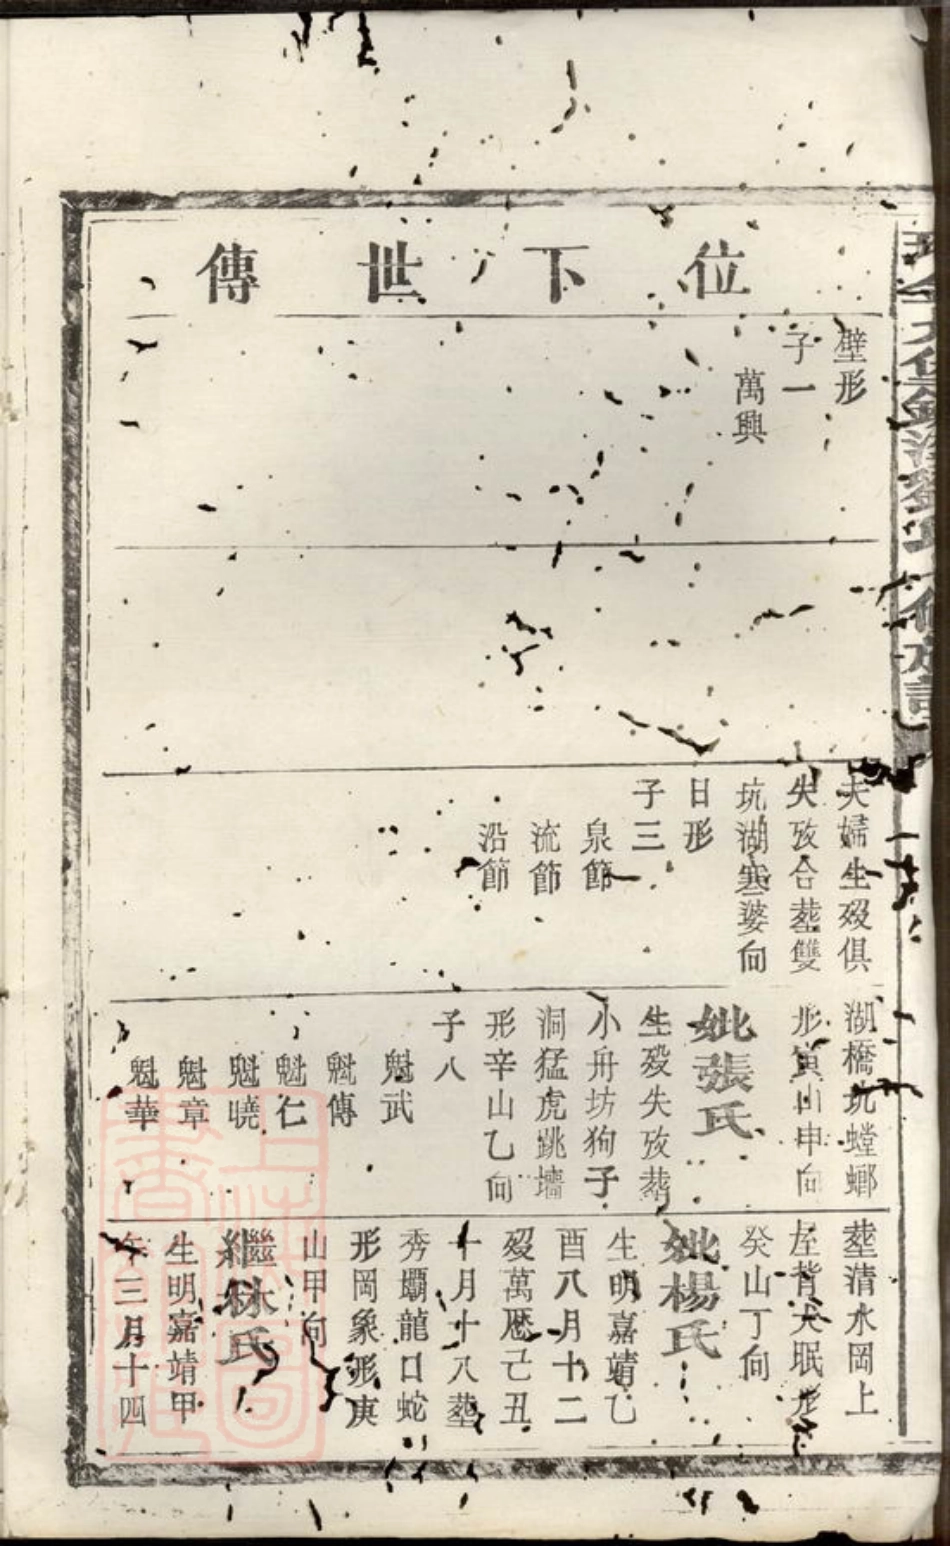 位下世傳
壁形
子一
萬興
夫婦生歿俱
失攷合塟雙
坑湖寒婆向
日形
子三
泉節
流節
沿節
湖橋坑螳螂
形寅山申向
妣張氏
生歿失攷塟
小舟坊狗子
洞猛虎跳墻
形辛山乙向
子八
魁武
魁傳
魁仁
魁曉
魁章
魁華
塟清水岡上
左背犬眠形
癸山丁向
妣楊氏
生明嘉靖乙
酉八月十二
歿萬厯己丑
十月十八塟
秀壩龍口蛇
形岡象形庚
山甲向
繼林氏
生明嘉靖甲
午三月十四